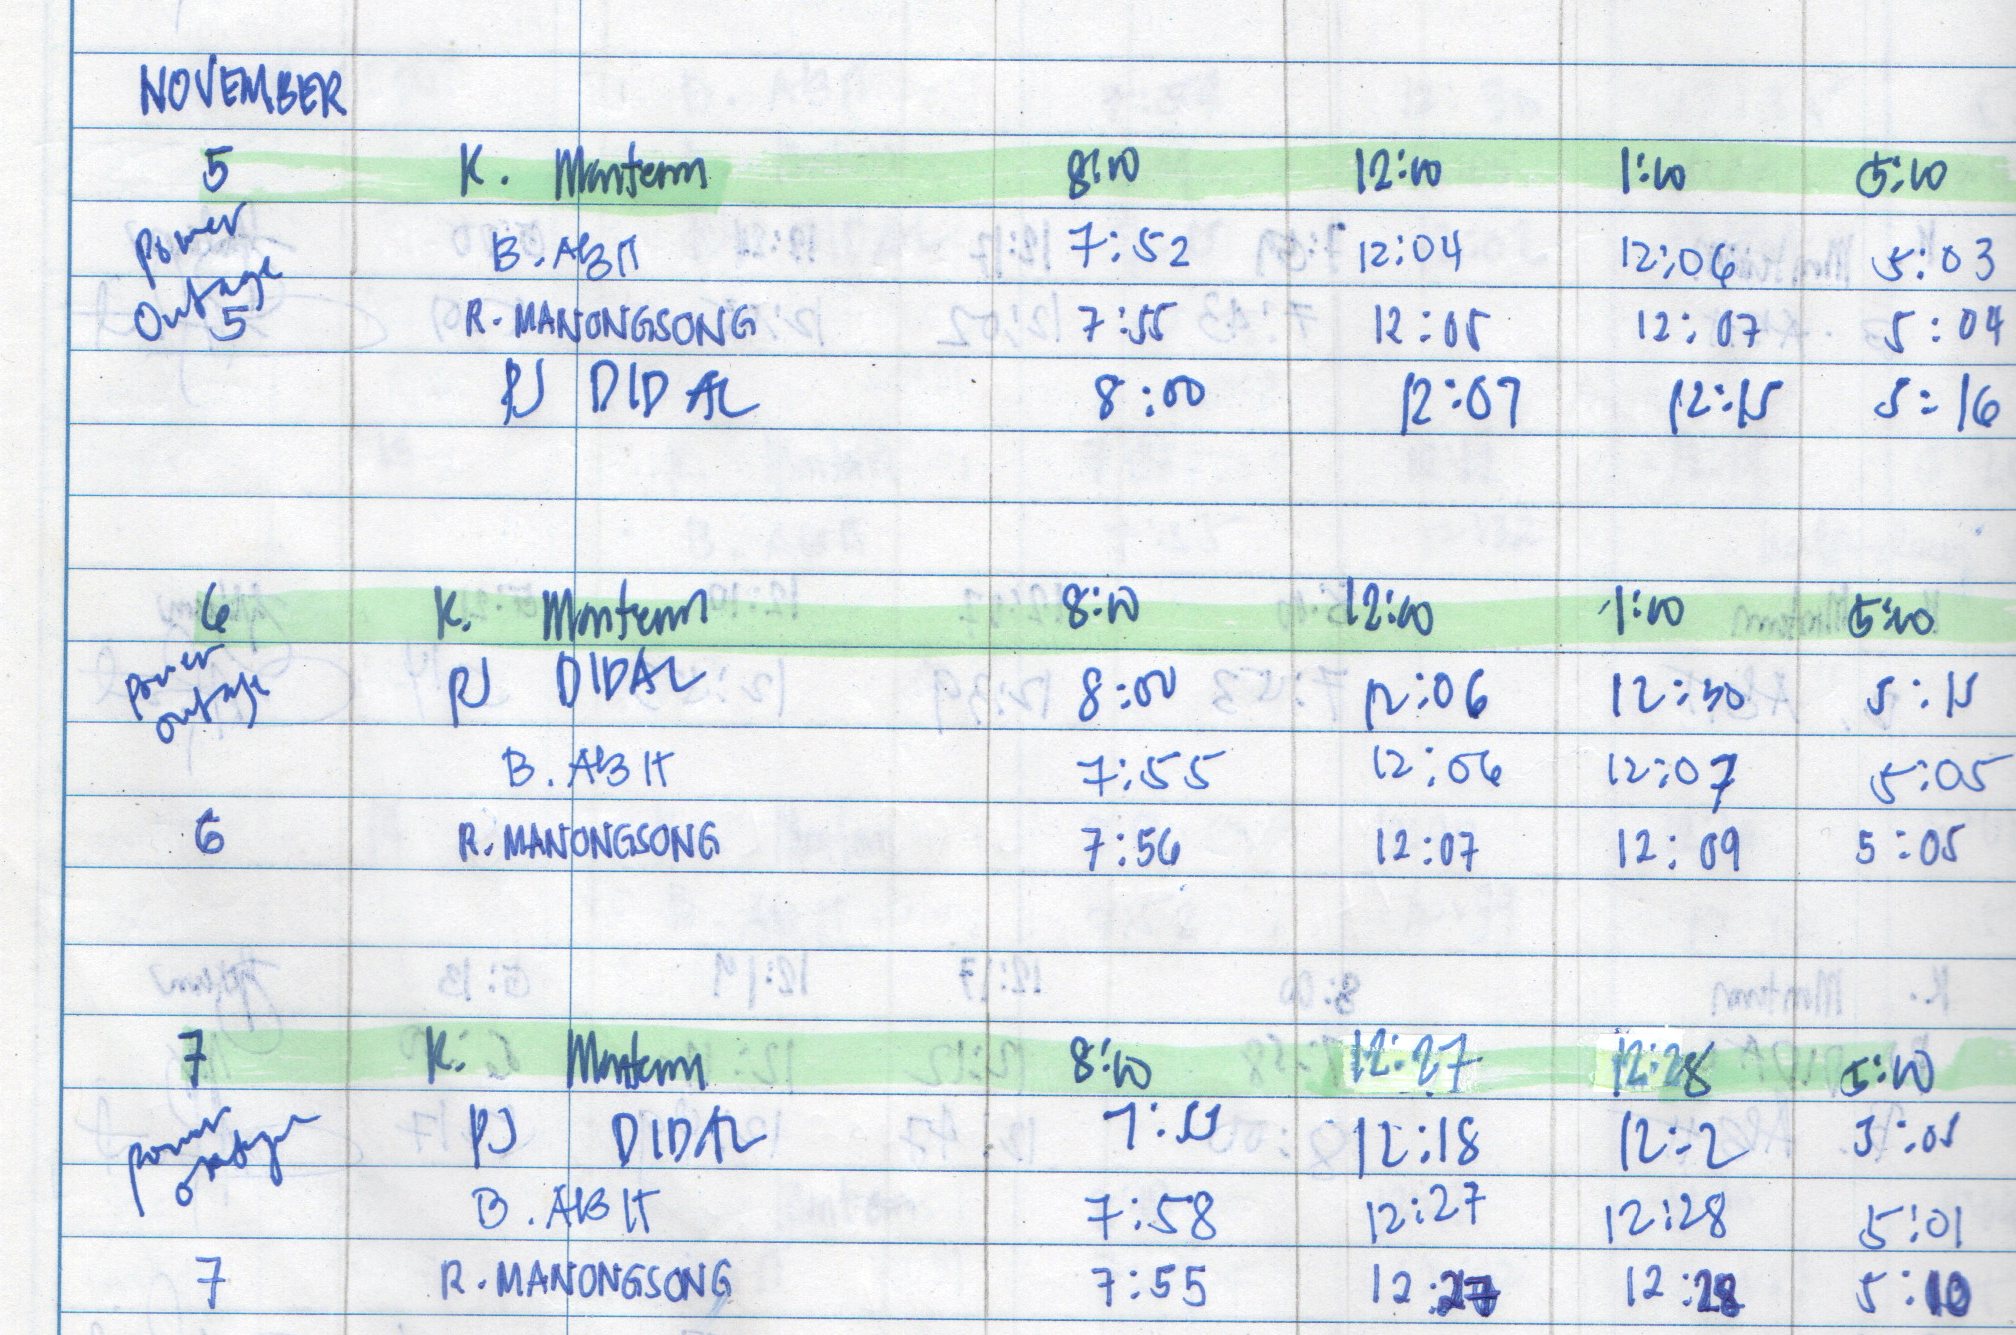 NOVEMBER
5 K. Monterm 8:10 12:10 1:10 5:10
Power B. ABIT 7:52 12:04 12:06 5:03
Outage
5 R. MANONGSONG 7:55 12:05 12:07 5:04
PJ DIDAL 8:00 12:07 12:15 5:16
6 K. Monterm 8:10 12:10 1:10 5:10
power PJ DIDAL 8:00 12:06 12:30 5:15
outage
B. ABIT 7:55 12:06 12:07 5:05
6 R. MANONGSONG 7:56 12:07 12:09 5:05
7 K. Monterm 8:10 12:27 12:28 5:10
power PJ DIDAL 12:18 12:2 5:05
outage B. ABIT 7:58 12:27 12:28 5:01
7 R. MANONGSONG 7:55 12:27 12:28 5:10